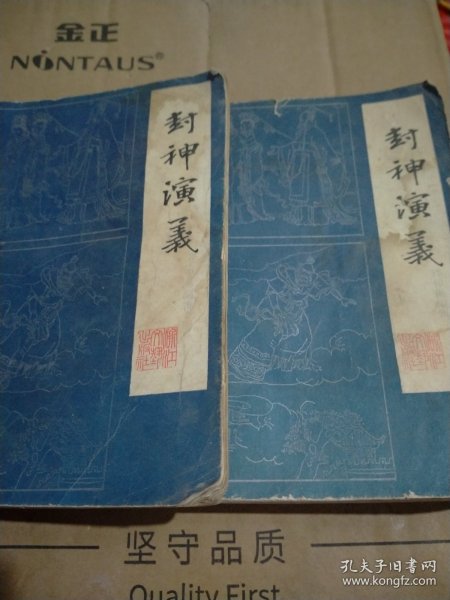 金正
NONTAUS®
封神演義
封神演義
坚守品质
Quality First
孔夫子旧书网
www.kongfz.com